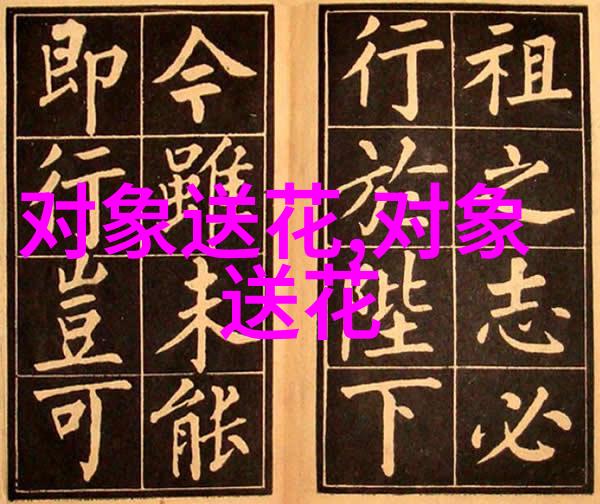 祖之志必
行於陛下
今雖未能
即行豈可
对象送花,对象
送花